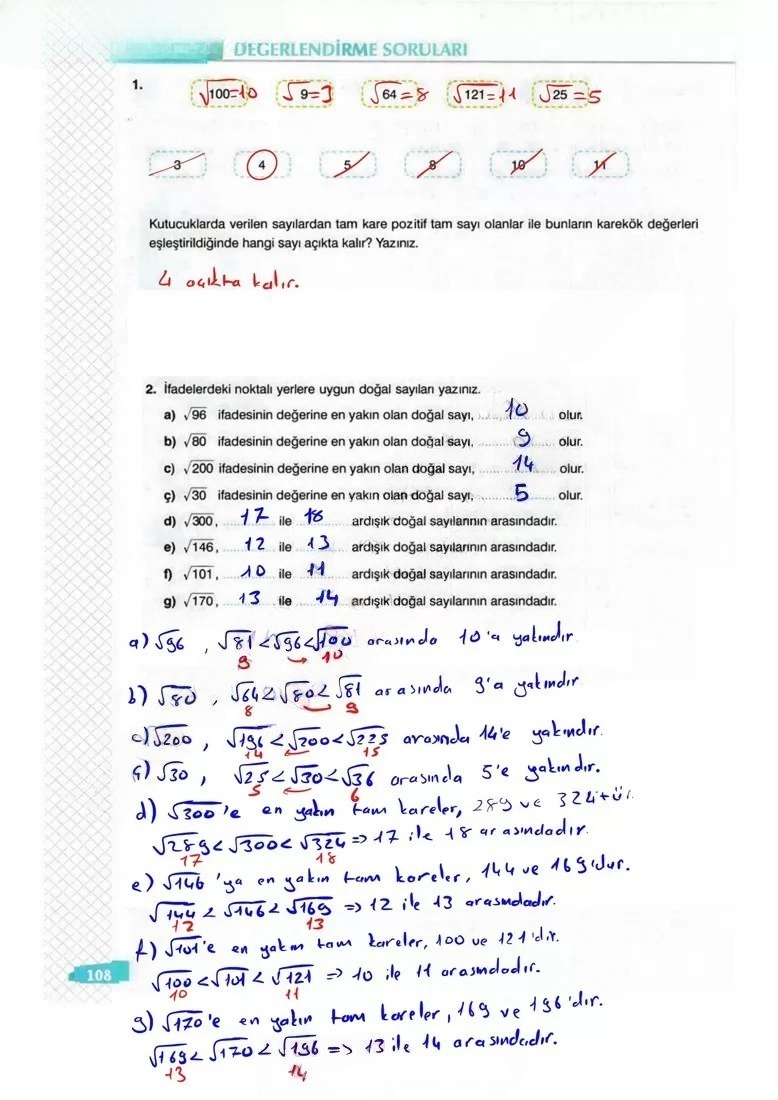 DEĞERLENDİRME SORULARI
1.
√100=10 √9=3 √64=8 √121=11 √25=5
3 4 5 8 10 11
Kutucuklarda verilen sayılardan tam kare pozitif tam sayı olanlar ile bunların karekök değerleri
eşleştirildiğinde hangi sayı açıkta kalır? Yazınız.
4 açıkta kalır.
2. İfadelerdeki noktalı yerlere uygun doğal sayıları yazınız.
a) √96 ifadesinin değerine en yakın olan doğal sayı, 10 olur.
b) √80 ifadesinin değerine en yakın olan doğal sayı, 9 olur.
c) √200 ifadesinin değerine en yakın olan doğal sayı, 14 olur.
ç) √30 ifadesinin değerine en yakın olan doğal sayı, 5 olur.
d) √300, 17 ile 18 ardışık doğal sayılarının arasındadır.
e) √146, 12 ile 13 ardışık doğal sayılarının arasındadır.
f) √101, 10 ile 11 ardışık doğal sayılarının arasındadır.
g) √170, 13 ile 14 ardışık doğal sayılarının arasındadır.
a) √96 , √81 < √96 < √100 arasında 10'a yakındır
9 → 10
b) √80 , √64 < √80 < √81 arasında 9'a yakındır
8 9
c) √200 , √196 < √200 < √225 arasında 14'e yakındır.
14 15
ç) √30 , √25 < √30 < √36 arasında 5'e yakındır.
5 6
d) √300'e en yakın tam kareler, 289 ve 324'tür.
√289 < √300 < √324 => 17 ile 18 arasındadır.
17 18
e) √146 'ya en yakın tam kareler, 144 ve 169'dur.
√144 < √146 < √169 => 12 ile 13 arasındadır.
12 13
f) √101'e en yakın tam kareler, 100 ve 121'dir.
√100 < √101 < √121 => 10 ile 11 arasındadır.
10 11
g) √170'e en yakın tam kareler, 169 ve 196'dır.
√169 < √170 < √196 => 13 ile 14 arasındadır.
13 14
108